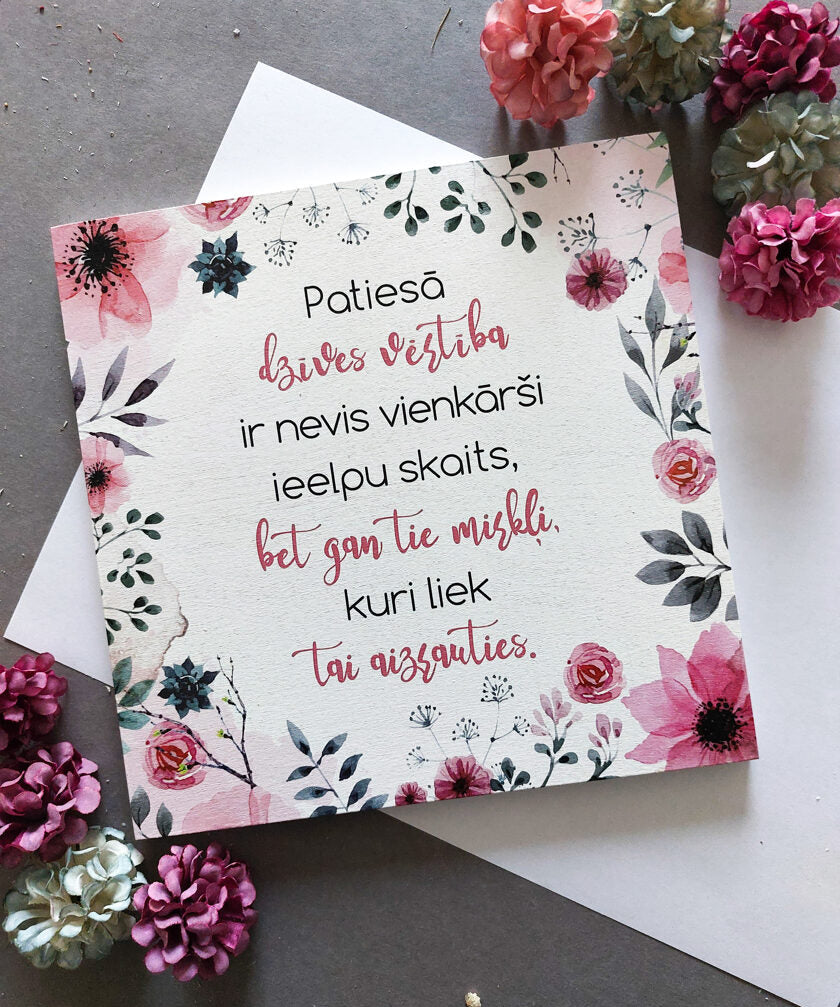 Patiesā
dzīves vērtība
ir nevis vienkārši
ieelpu skaits,
bet gan tie mirkļi,
kuri liek
tai aizrauties.